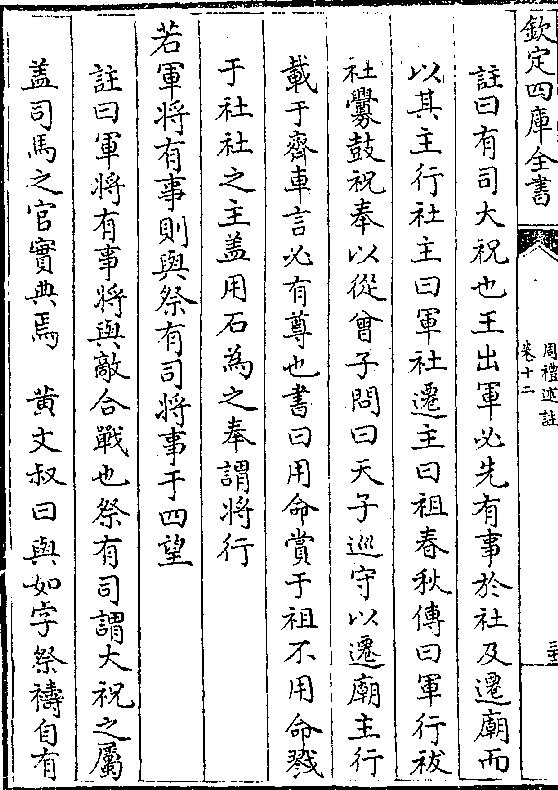 欽定四庫全書
周禮述註
卷十二
註曰有司大祝也王出軍必先有事於社及遷廟而
以其主行社主曰軍社遷主曰祖春秋傳曰軍行祓
社釁鼓祝奉以從曾子問曰天子巡守以遷廟主行
載于齊車言必有尊也書曰用命賞于祖不用命戮
于社社之主盖用石為之奉謂將行
若軍將有事則與祭有司將事于四望
註曰軍將有事將與敵合戰也祭有司謂大祝之屬
盖司馬之官實典焉　黄文叔曰與如字祭禱自有